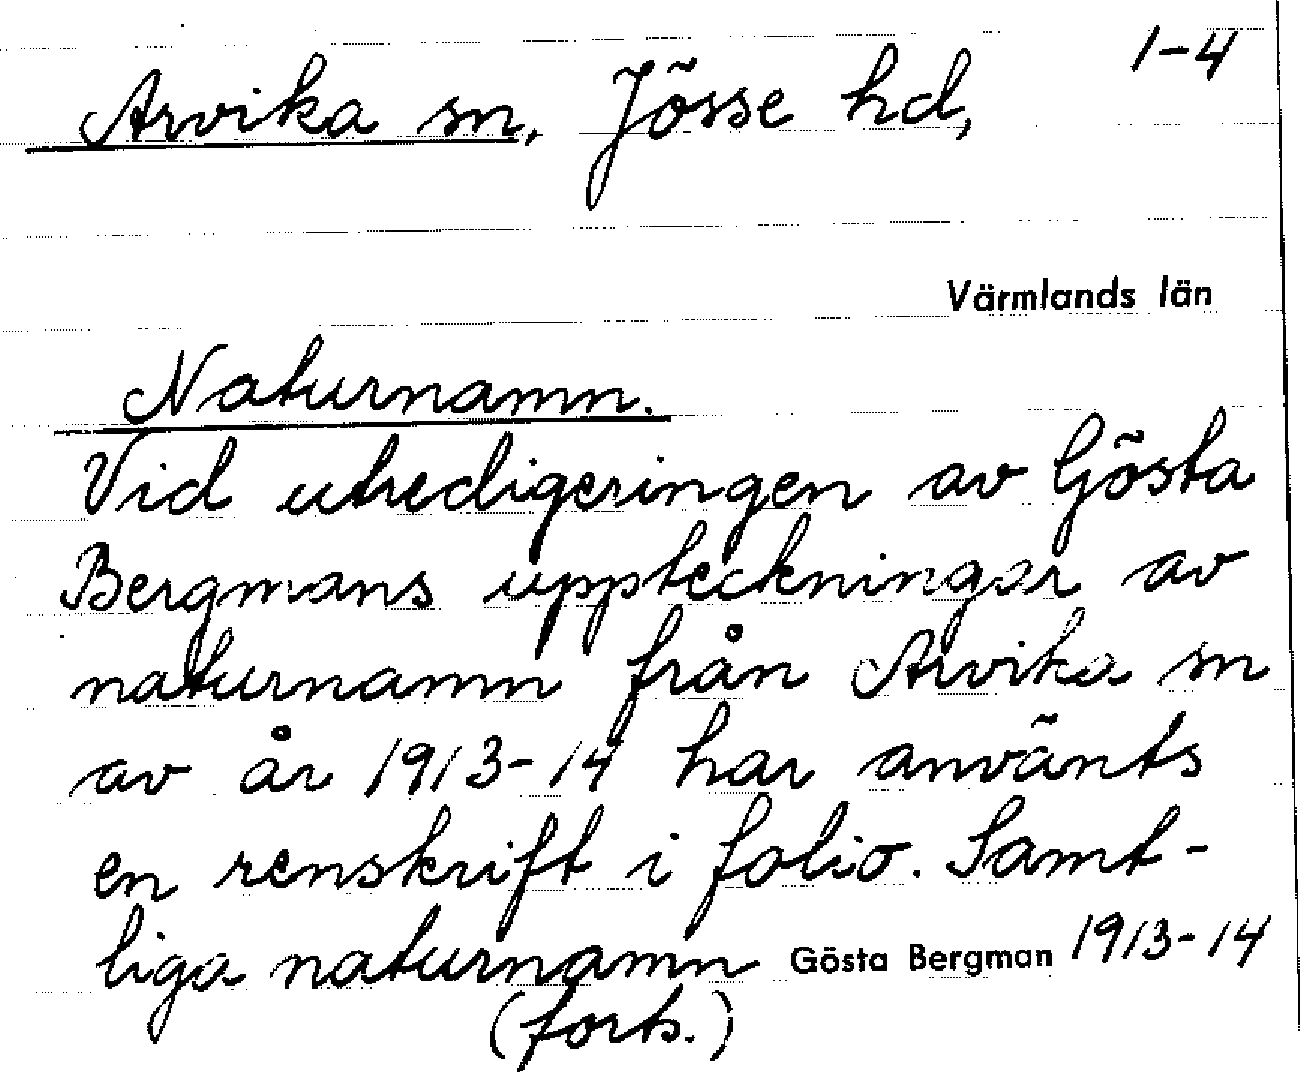 1-4
Arvika sn, Jösse hd,
Värmlands län
Naturnamn.
Vid utredigeringen av Gösta
Bergmans uppteckningar av
naturnamn från Arvika sn
av år 1913-14 har använts
en renskrift i folio. Samt-
liga naturnamn Gösta Bergman 1913-14
(forts.)